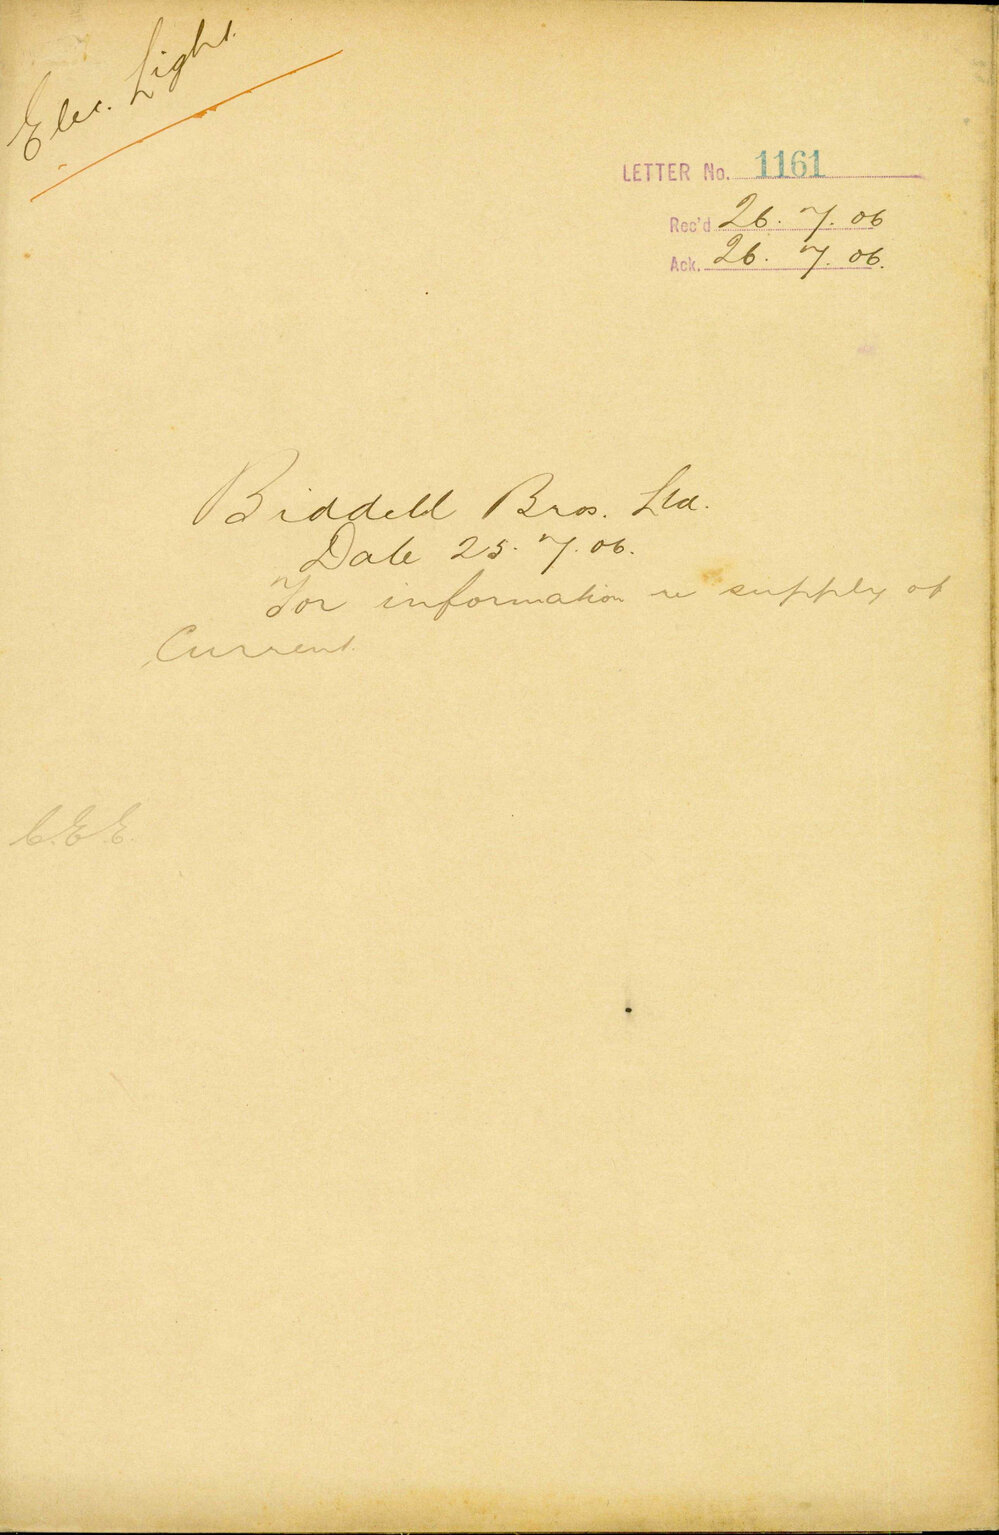 Elec. Light.
LETTER No. 1161
Rec'd 26. 7. 06
Ack. 26. 7. 06.
Biddell Bros. Ltd.
Date 25. 7. 06.
For information re supply of
Current.
C.E.E.